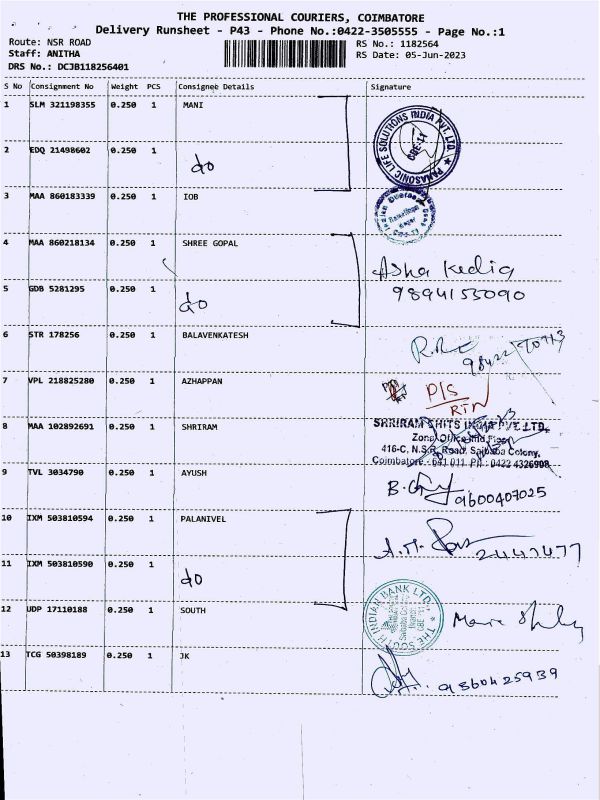 THE PROFESSIONAL COURIERS, COIMBATORE
Delivery Runsheet - P43 - Phone No.:0422-3505555 - Page No.:1
Route: NSR ROAD RS No.: 1182564
Staff: ANITHA RS Date: 05-Jun-2023
DRS No.: DCJB118256401
S No Consignment No Weight PCS Consignee Details Signature
1 SLM 321198355 0.250 1 MANI
PANASONIC LIFE SOLUTIONS INDIA PVT. LTD.
CBE-11
2 EDQ 21498602 0.250 1 do
3 MAA 860183339 0.250 1 IOB
Indian Overseas
4 MAA 860218134 0.250 1 SHREE GOPAL
Asha Kedia
5 GDB 5281295 0.250 1 do 9894153090
6 STR 178256 0.250 1 BALAVENKATESH
7 VPL 218825280 0.250 1 AZHAPPAN P/S
RTN
8 MAA 102892691 0.250 1 SHRIRAM
SHRIRAM CHITS INDIA PVT. LTD.
Zonal Office IInd Floor
416-C, N.S.R. Road, Saibaba Colony,
Coimbatore - 641 011. PH : 0422 4326908
9 TVL 3034790 0.250 1 AYUSH
9600407025
10 IXM 503810594 0.250 1 PALANIVEL
2447477
11 IXM 503810590 0.250 1 do
12 UDP 17110188 0.250 1 SOUTH
THE SOUTH INDIAN BANK LTD
13 TCG 50398189 0.250 1 JK
9360425939